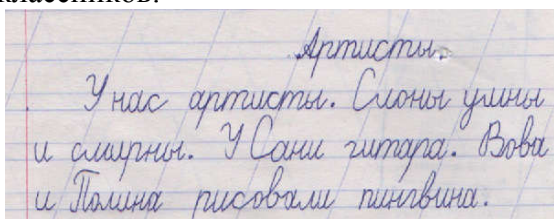 классников.
Артисты.
У нас артисты. Слоны умны
и смирны. У Сани гитара. Вова
и Полина рисовали пингвина.